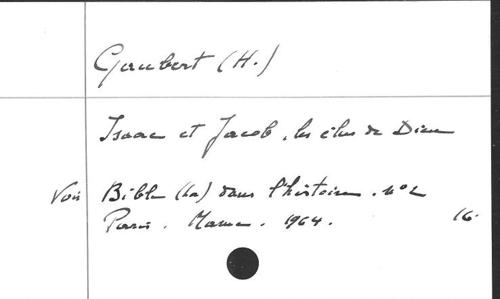 Gaubert (H.)
Isaac et Jacob, les élus de Dieu
Voir Bible (La) dans l'histoire. n°2
Paris. Mame. 1964. 16.